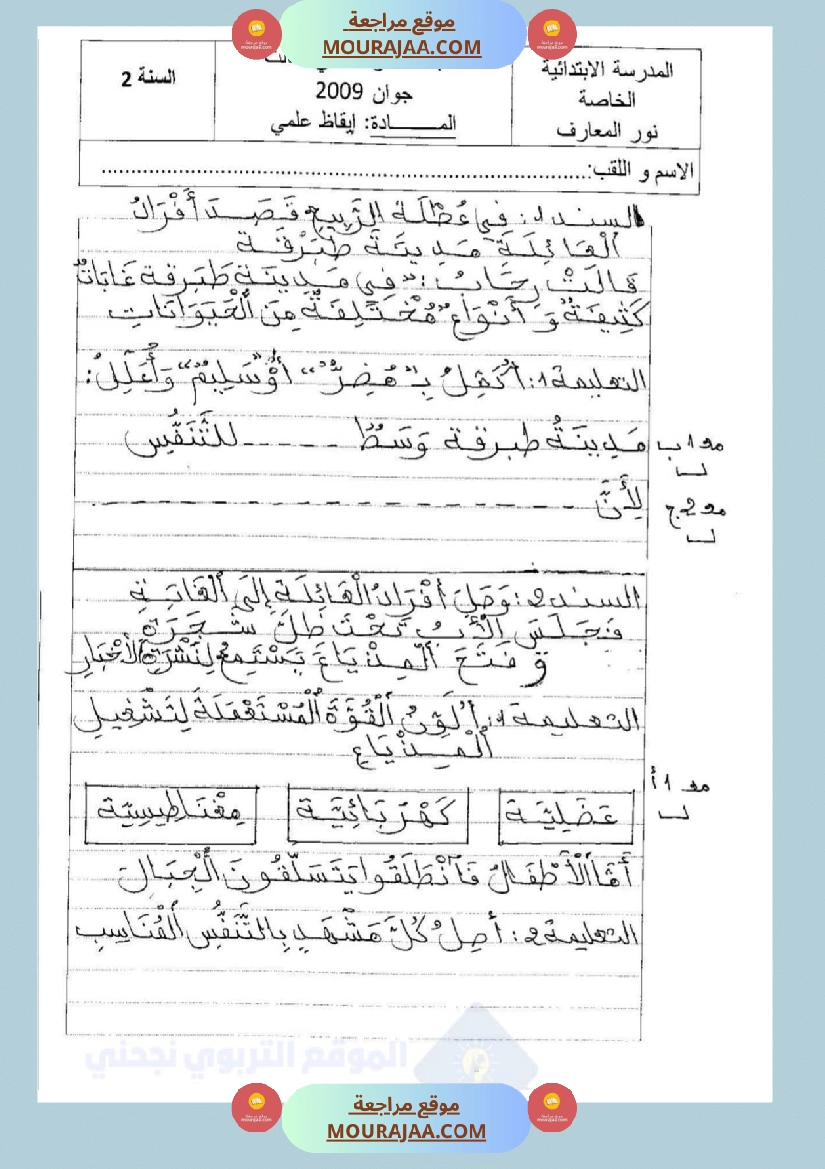 موقع مراجعة
MOURAJAA.COM
المدرسة الابتدائية
الخاصة
نور المعارف
جوان 2009
المـــــادة: إيقاظ علمي
السنة 2
الاسم و اللقب:
السند 1: في عُطْلَة الرَّبِيعِ قَصَدَ أَفْرَادُ
الْعَائِلَةِ مَدِينَةَ طَبَرْقَة
قَالَتْ رِحَابُ: "فِي مَدِينَةِ طَبَرقة غَابَاتٌ
كَثِيفَةٌ وَ أَنْوَاعٌ مُخْتَلِفَةٌ مِنَ الْحَيَوَانَاتِ
التعليمة 1: أُكْمِلُ بِـ "مُضِرٌّ" أَوْ "سَلِيمٌ" وَأُعَلِّلُ:
مَدِينَةُ طبرقة وَسَطٌ ..... للتَّنَفُّس
مع 1 ب
لِأَنَّ
مع 2 ج
السند 2: وَصَلَ أَفْرَادُ الْعَائِلَةِ إِلَى الْغَابَةِ
فَجَلَسَ الْأَبُ تَحْتَ ظِلِّ شَجَرَةٍ
وَ فَتَحَ الْمِذْيَاعَ يَسْتَمِعُ لِنَشْرَةِ الْأَخْبَارِ
التعليمة 1: أُلَوِّنُ الْقُوَّةَ الْمُسْتَعْمَلَةَ لِتَشْغِيلِ
الْمِذْيَاعِ
مع 1 أ
عَضَلِيَّة
كَهْرَبَائِيَّة
مِغْنَاطِيسِيَّة
أَمَّا الْأَطْفَالُ فَانْطَلَقُوا يَتَسَلَّقُونَ الْجِبَالَ
التعليمة 2: أَصِلُ كُلَّ مَشْهَدٍ بِالتَّنَفُّسِ الْمُنَاسِبِ
الموقع التربوي نجحني
موقع مراجعة
MOURAJAA.COM